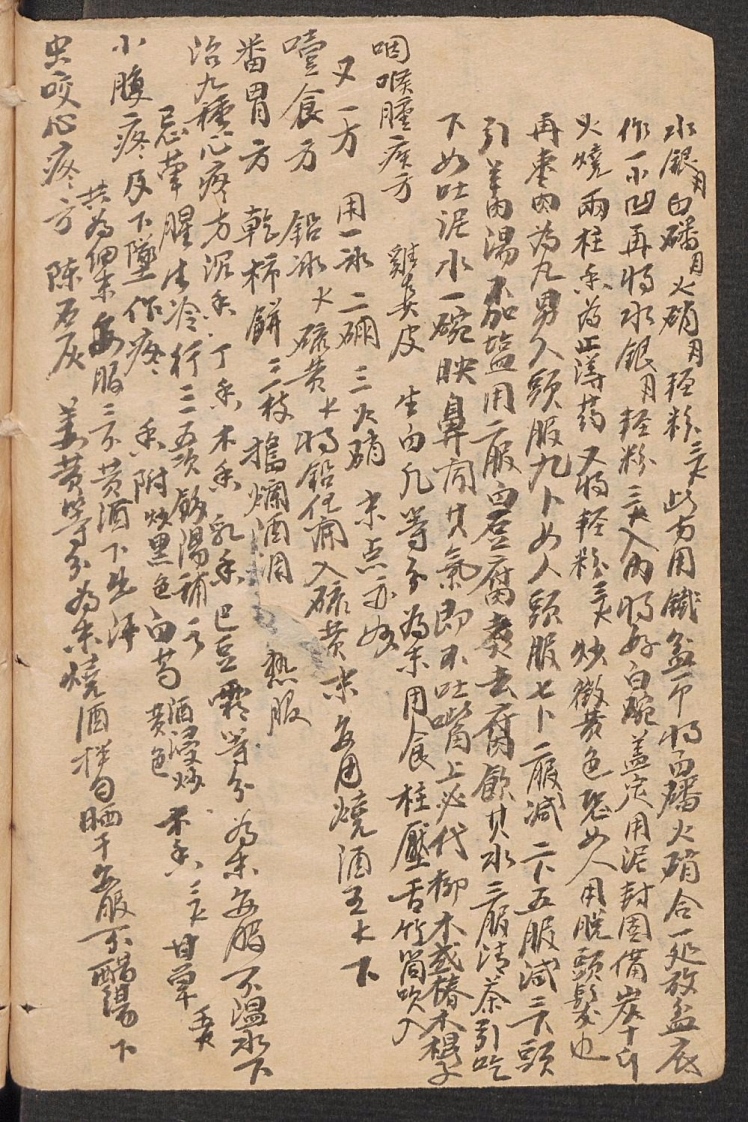 水銀 白礬 火硝 輕粉 此方用鐵盆一个將白礬火硝合一処放盆底
作一小凹再將水銀 輕粉 入內將好白碗蓋定用泥封固備炭十斤
火燒兩柱香為止 又將輕粉 炒微黃色 女人用脫頭髮也
再棗肉為丸男人頭服九卜女人頭服七卜二服減二卜五服減三卜頭
引羊肉湯不加鹽用二服白豆腐煮去腐飲其水三服清茶引吃
下如吐泥水一碗映鼻聞其氣即不吐嘴上必代柳木或椿木棍子
咽喉腫疼方 雞 皮 生白凡等分為末用食柱壓舌竹筒吹入
又一方 用一冰二硼三火硝 末点亦好
噎食方 鉛 硫黃 將鉛化開入硫黃末每用燒酒五 下
番胃方 乾柿餅三枝搗爛酒 熱服
治九種心疼方沉香 丁香 木香 乳香 巴豆霜等分 為末每服 溫水下
忌葷腥生冷行三五次飯湯補
小腹疼及下墜作疼 香附炒黑色 白芍酒浸炒黃色 木香 甘草
共為細末每服 黃酒下
虫咬心疼方 陳石灰 姜黃等分為末燒酒拌勻晒干每服 醋湯下